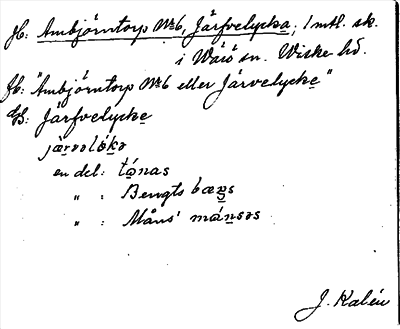 H: Ambjörntorp No 6, Järfvelycka, 1 mtl. sk.
i Wäiö sn. Wiske hd.
Jb: "Ambjörntorp No 6 eller Järvelycke"
Ub: Järfvelycke
järvəlökə
en del: tǫ́nas
" : Bengts bæŋs
" : Måns' mánsəs
J. Kalén